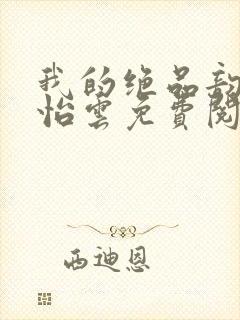 我的绝品
怡雲免費閱
西迪恩